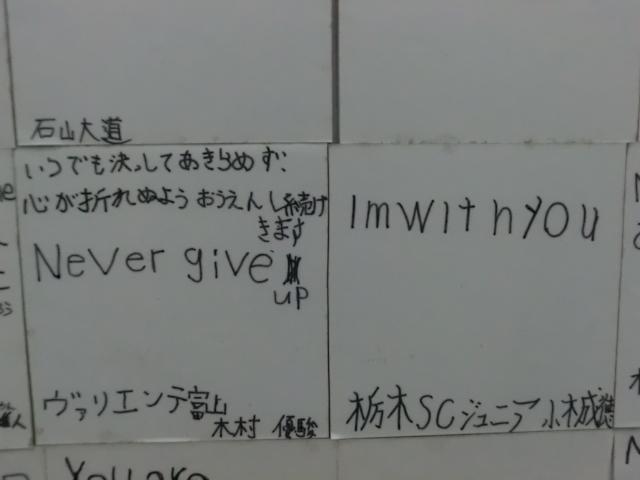 石山大道
いつでも決してあきらめず、
心が折れぬよう おうえんし続け
きます
Never give
up
ヴァリエンテ富山
木村 優駿
Im with you
栃木SCジュニア
You are